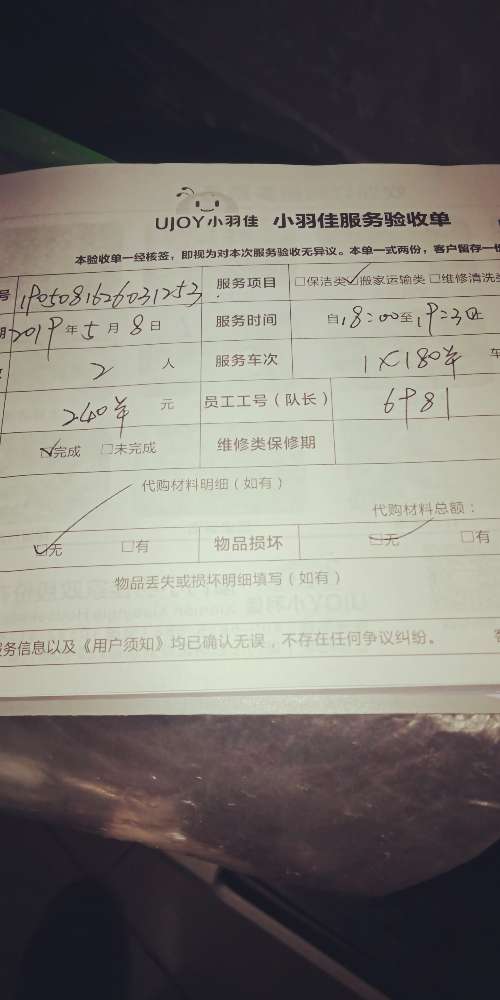 UJOY小羽佳 小羽佳服务验收单
本验收单一经核签，即视为对本次服务验收无异议。本单一式两份，客户留存一份
号 1905081626031253 服务项目 □保洁类 ☑搬家运输类 □维修清洗类
期 2019年5月8日 服务时间 自18:00至19:30止
2 人 服务车次 1×180单 车
240单 元 员工工号（队长） 6981
☑完成 □未完成 维修类保修期
代购材料明细（如有）
代购材料总额：
☑无 □有 物品损坏 ☑无 □有
物品丢失或损坏明细填写（如有）
服务信息以及《用户须知》均已确认无误，不存在任何争议纠纷。